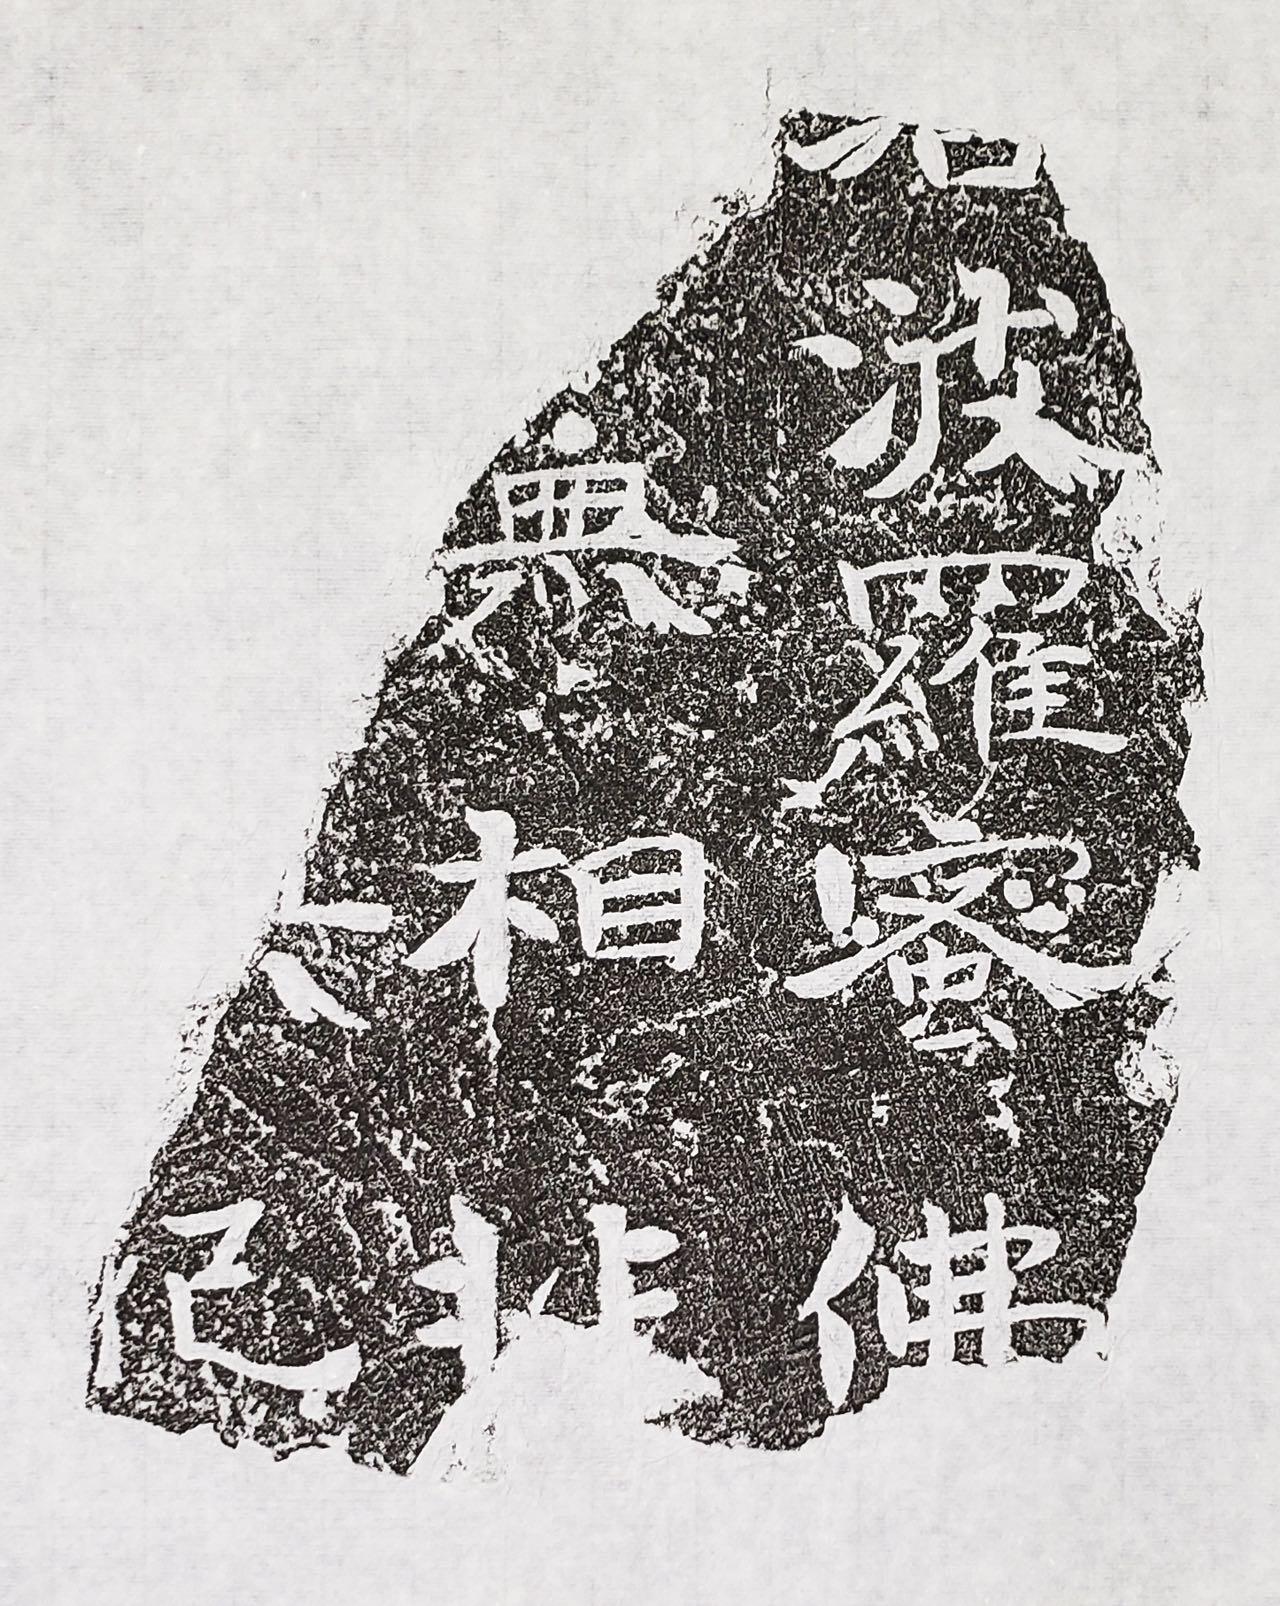 若波羅蜜佛
無相